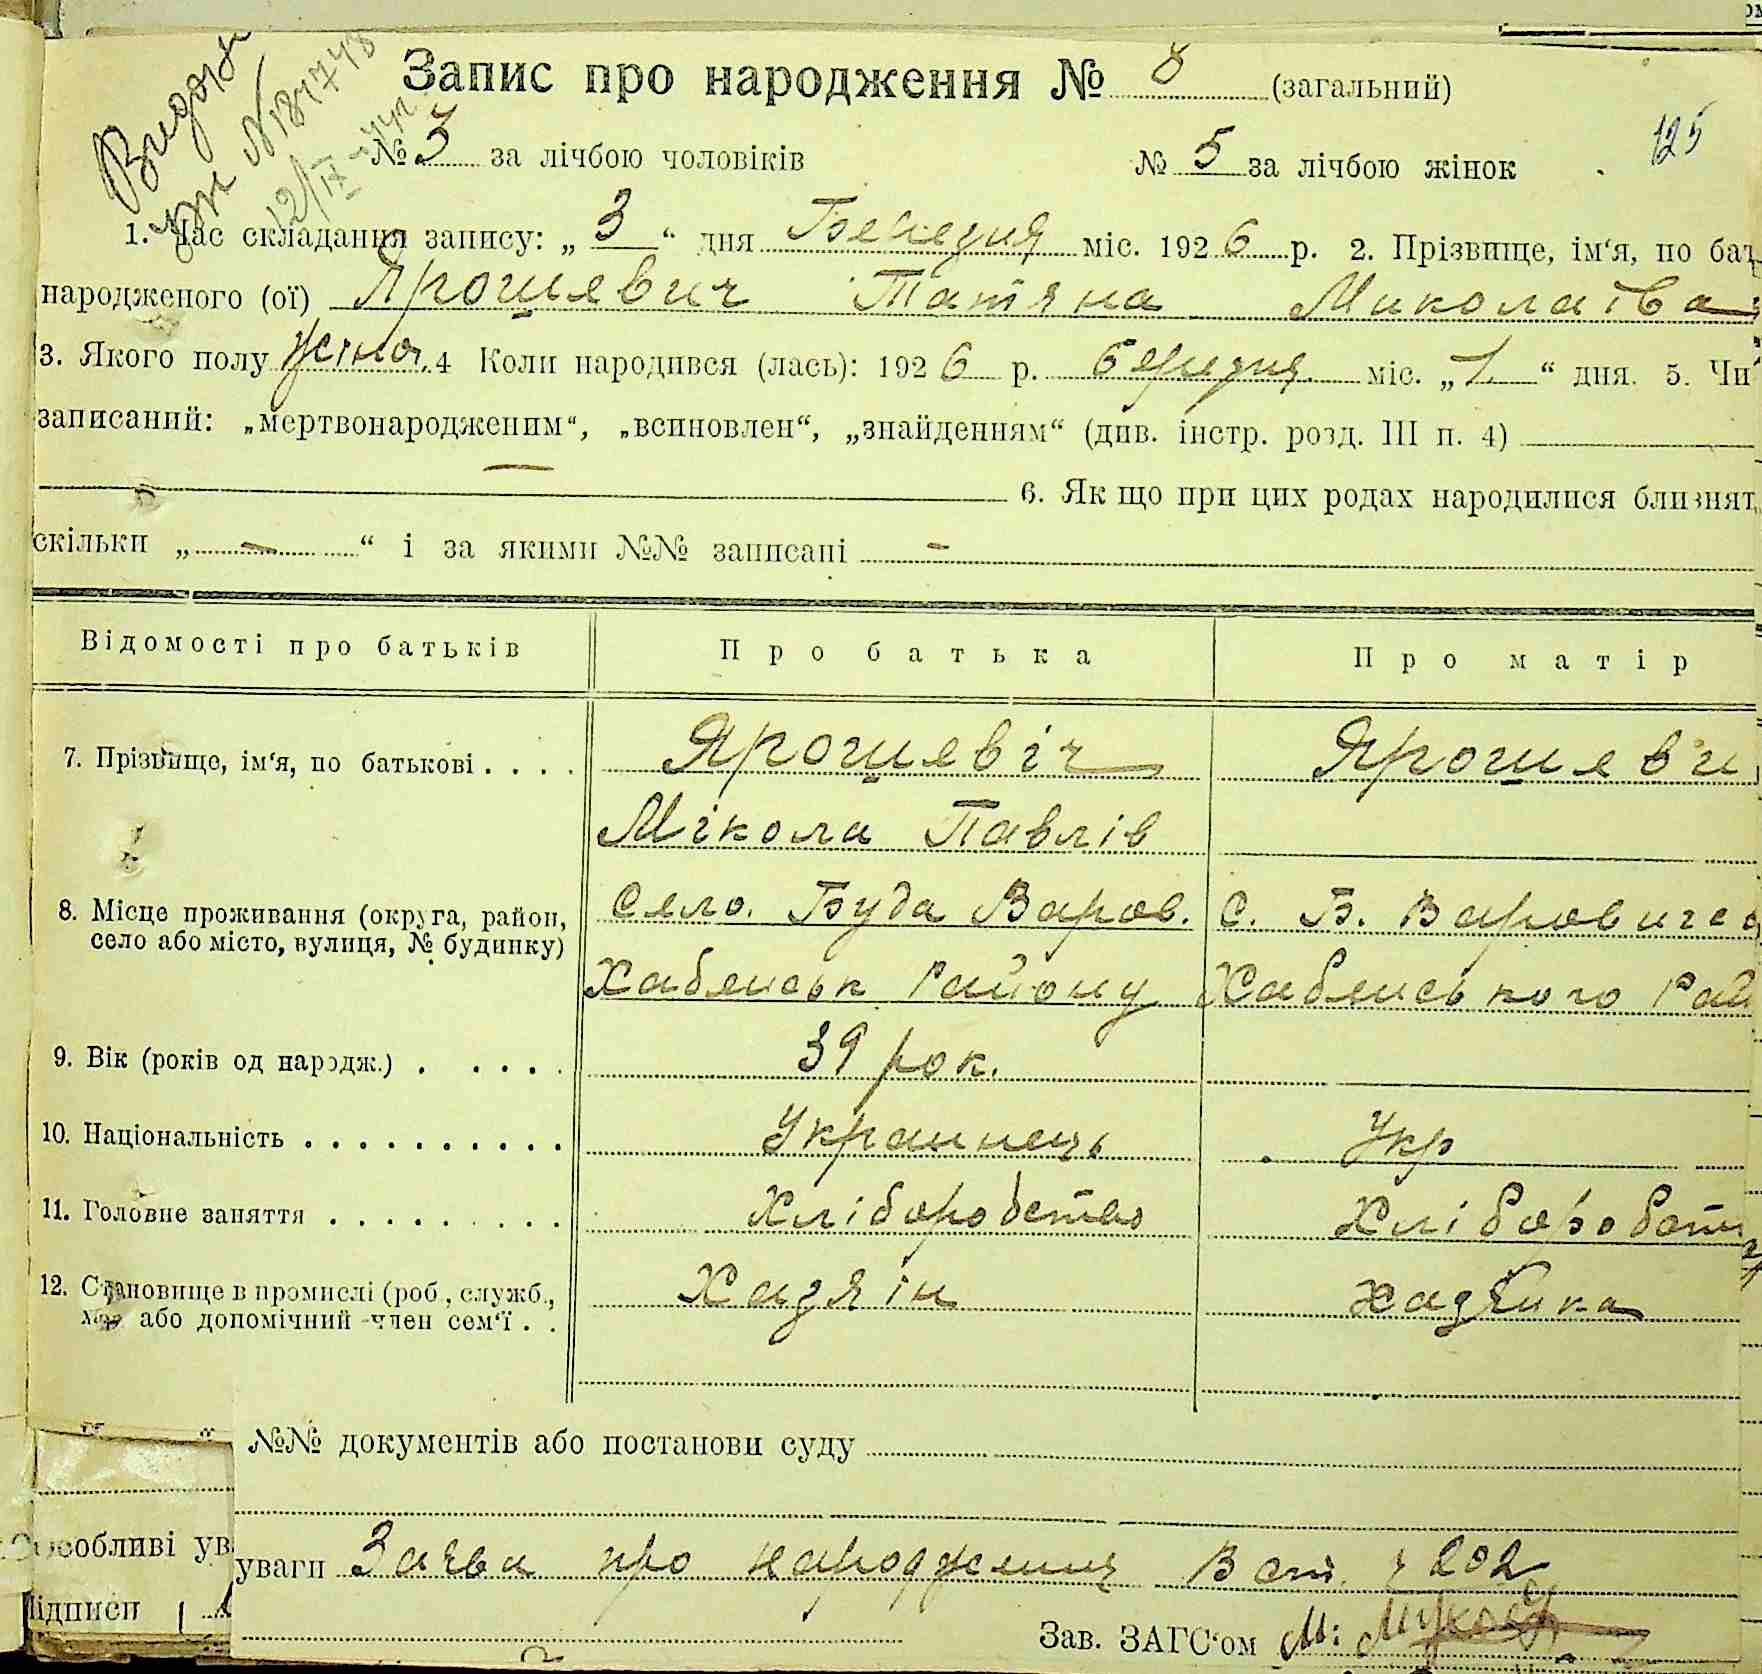 Запис про народження № 8 (загальний)
№ 3 за лічбою чоловіків № 5 за лічбою жінок 125
1. Час складання запису: „ 3 “ дня міс. 192 6 р. 2. Прізвище, ім‘я, по бат
народженого (ої) Ярошевич Татяна Миколаїва
3. Якого полу жіноч. 4 Коли народився (лась): 192 6 р. березня міс. „ 1 “ дня. 5. Чи
записаний: „мертвонародженим“, „всиновлен“, „знайденням“ (див. інстр. розд. III п. 4)
— 6. Як що при цих родах народилися близнят
скільки „ — “ і за якими №№ записані —
Відомості про батьків Про батька Про матір
7. Прізвище, ім‘я, по батькові . . . . Ярошевіч Ярошеви
Мікола Павлів
8. Місце проживання (округа, район, Село. Буда Варов. с. Б. Варовичі
село або місто, вулиця, № будинку)
Хабенськ Району Хабенського Рай
9. Вік (років од народж.) . . . . . 39 рок.
10. Національність . . . . . . . . . . . Украинець Укр
11. Головне заняття . . . . . . . . . . Хліборобство Хліборобст
12. Становище в промислі (роб., служб., Хадяін хадяика
хаз. або допомічний член сем‘ї . .
№№ документів або постанови суду
Особливі ув
уваги Заява про народження 202
Підписи
Зав. ЗАГС‘ом М: